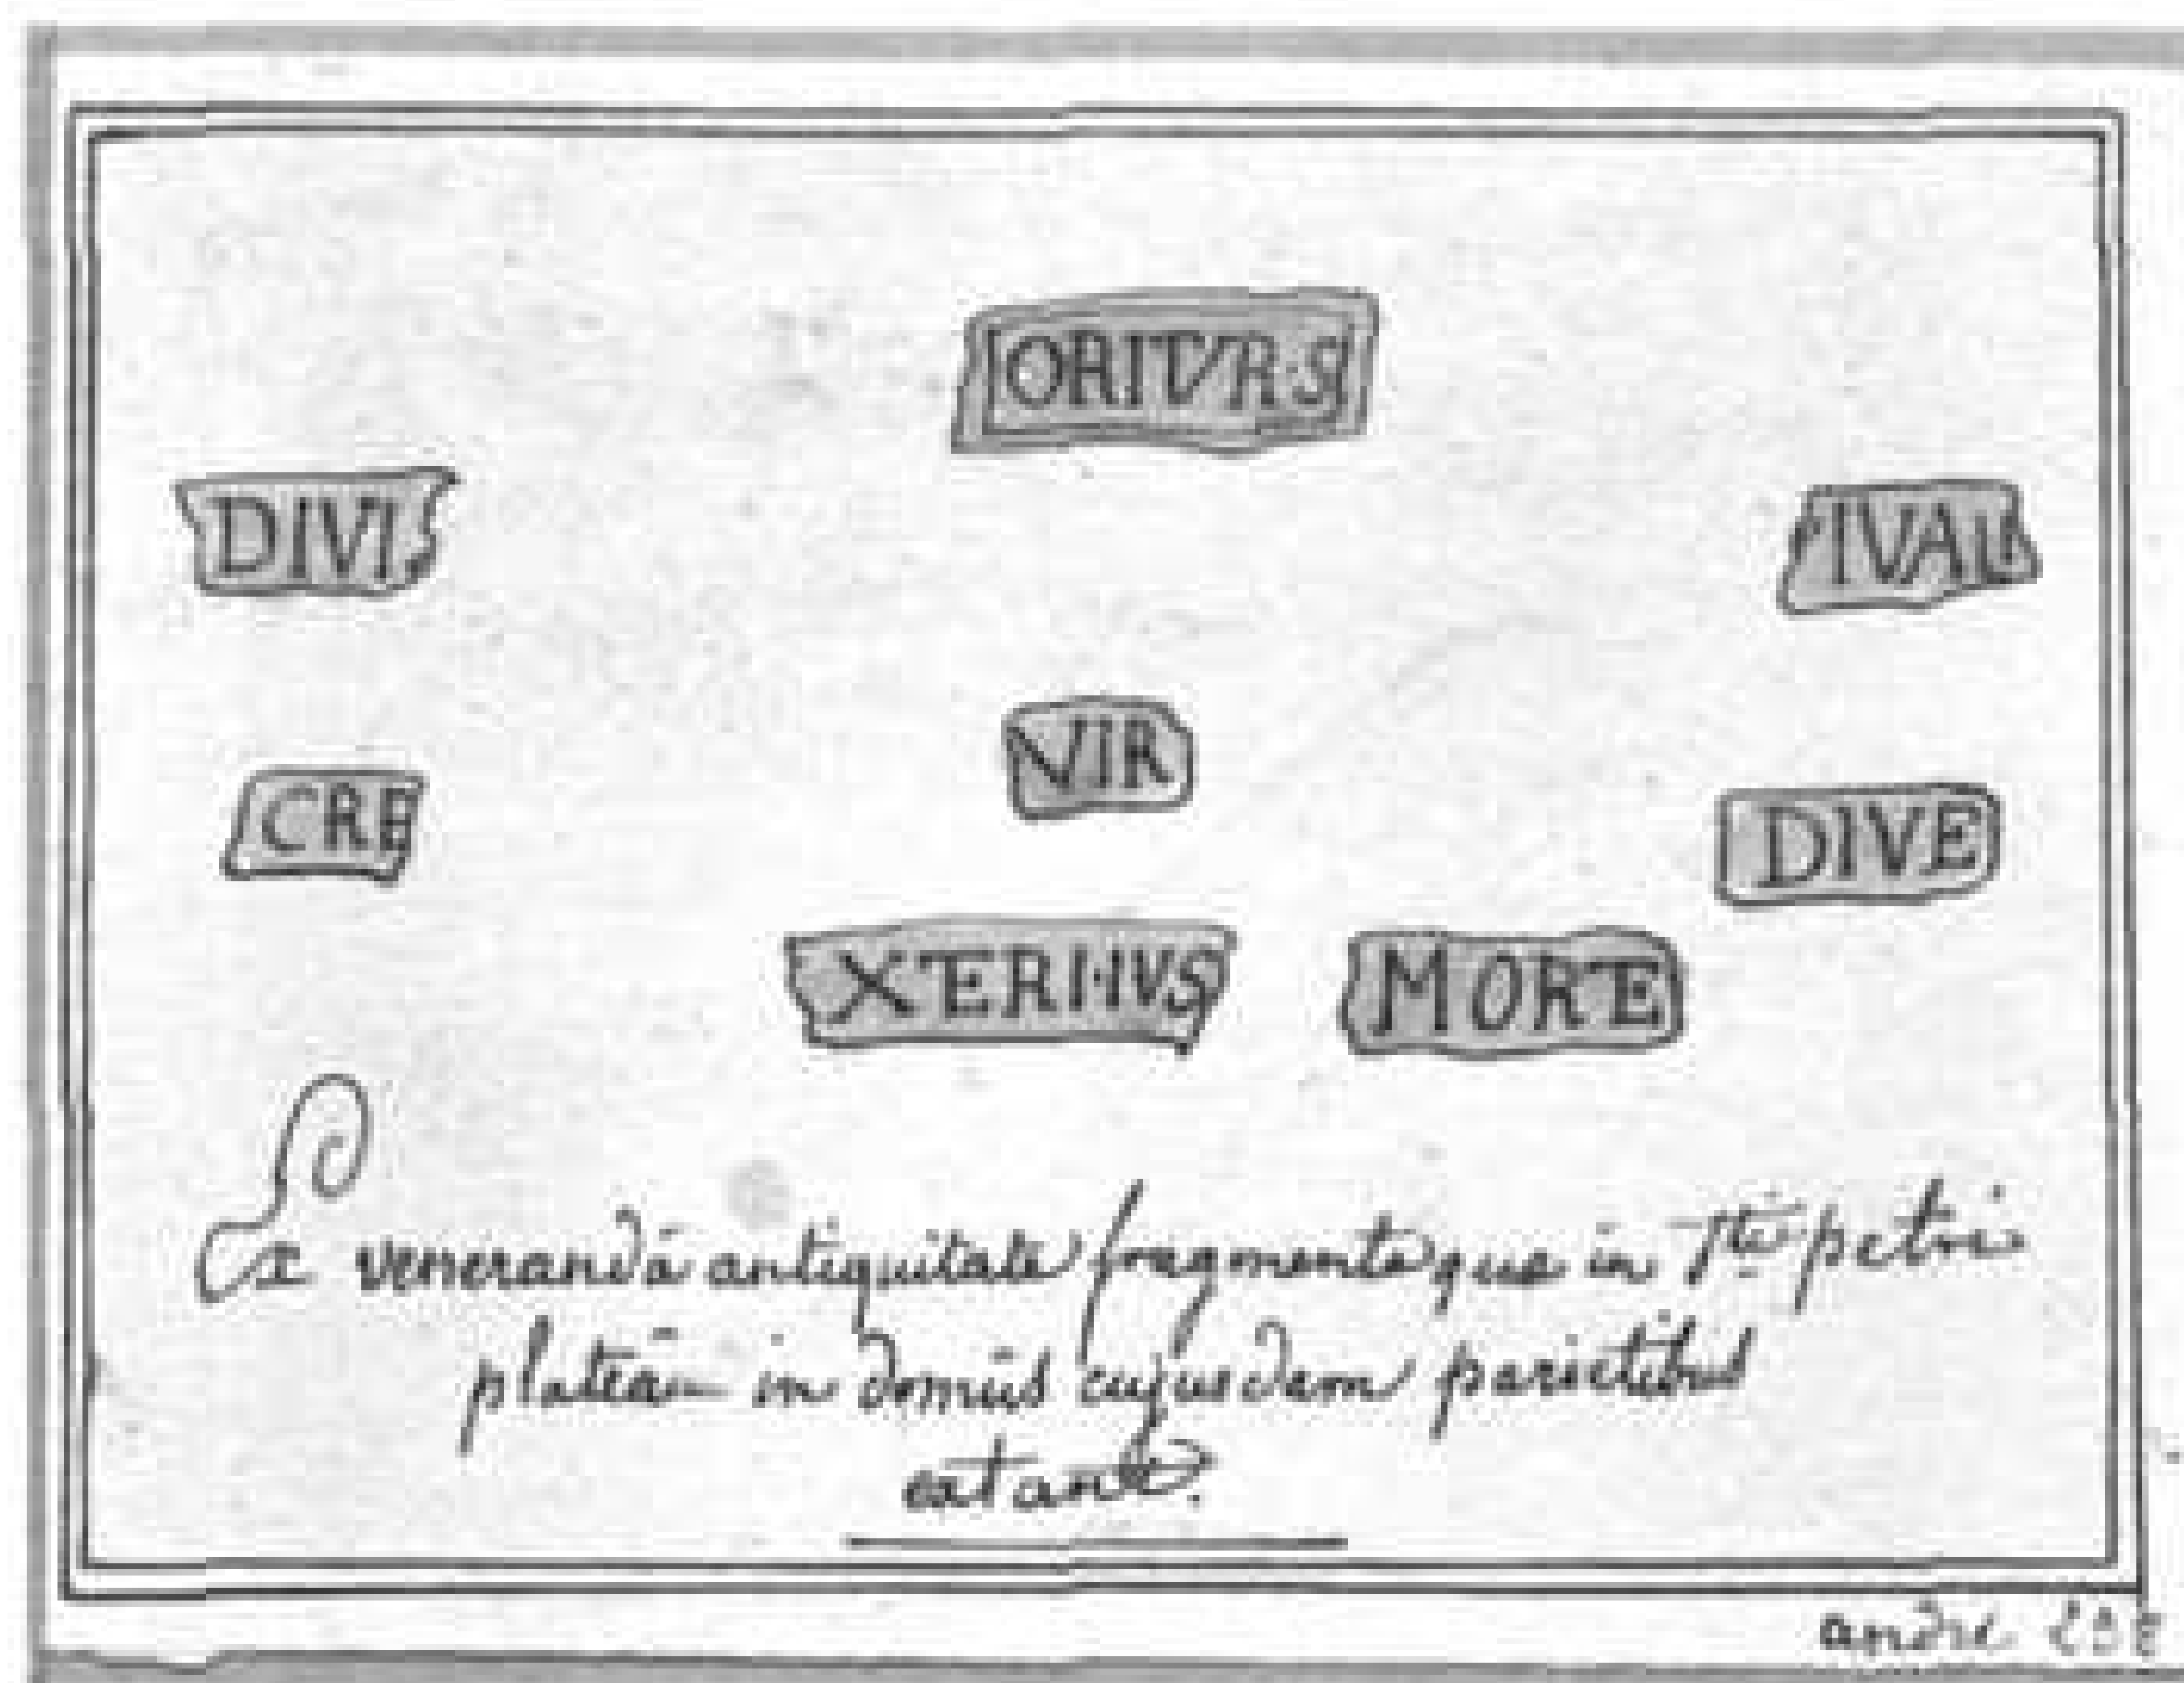 ORITVR·S
DIVI
IVAL
VIR
CRE
DIVE
XERI·IVS
MORE
Ex venerandâ antiquitate fragmenta que in Sti petri
plateâ in domûs cujusdam parietibus
extant.
andre